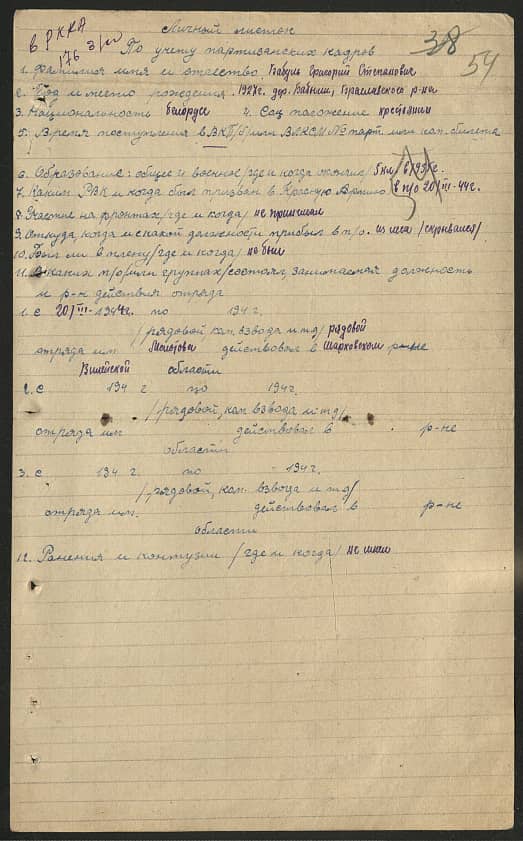 в РККА
176 3/VII
Личный листок
38
По учету партизанских кадров
54
1. Фамилия имя и отчество. Бабуль Григорий Степанович
2. Год и место рождения. 1927г. дер. Бабыни, Браславского р-на
3. Национальность белорус 4. Соц положение крестьянин
5. Время поступления в ВКП/б/ или ВЛКСМ № парт. или кан. билета
6. Образование: общее и военное /где и когда окончил/ 5 кл/ в 193 г.
7. Каким РВК и когда был призван в Красную Армию в п/о 20/III-44г.
8. Участие на фронтах /где и когда/ не принимал
9. Откуда, когда и с какой должности прибыл в п/о. из леса /скрывался/
10. Был ли в плену /где и когда/ не был
11. В каких п/о/или группах/состоял, занимаемая должность
и р-н действия отряда
1. с 20/III-1944г. по 194 г.
/рядовой, ком. взвода и тд/ рядовой
отряда им Молотова действовал в Шарковском р-не
Вилейской области
2. с 194 г по 194г.
/рядовой, ком взвода и тд/
отряда им действовал в р-не
области
3. с 194 г. по 194г.
/рядовой, ком. взвода и тд/
отряда им. действовал в р-не
области
12. Ранения и контузии /где и когда/ не имел